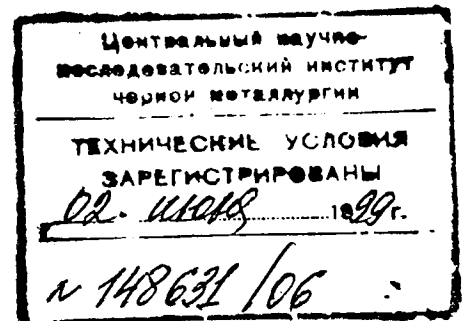 Центральный научно-
исследовательский институт
черной металлургии
ТЕХНИЧЕСКИЕ УСЛОВИЯ
ЗАРЕГИСТРИРОВАНЫ
02. июня 1999г.
№ 148631/06